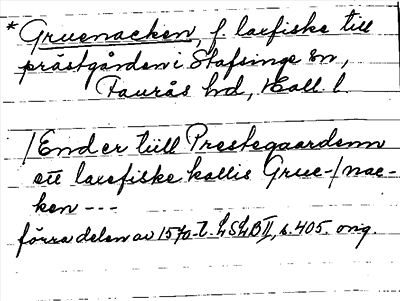 * Gruenacken, f. laxfiske till
prästgården i Stafsinge sn,
Faurås hd, Hall. l.
/End er tiill Prestegaardenn
ett laxefiske kallis Grue-/nac-
ken ---
förra delen av 1570-t. LSLB II, s. 405. orig.